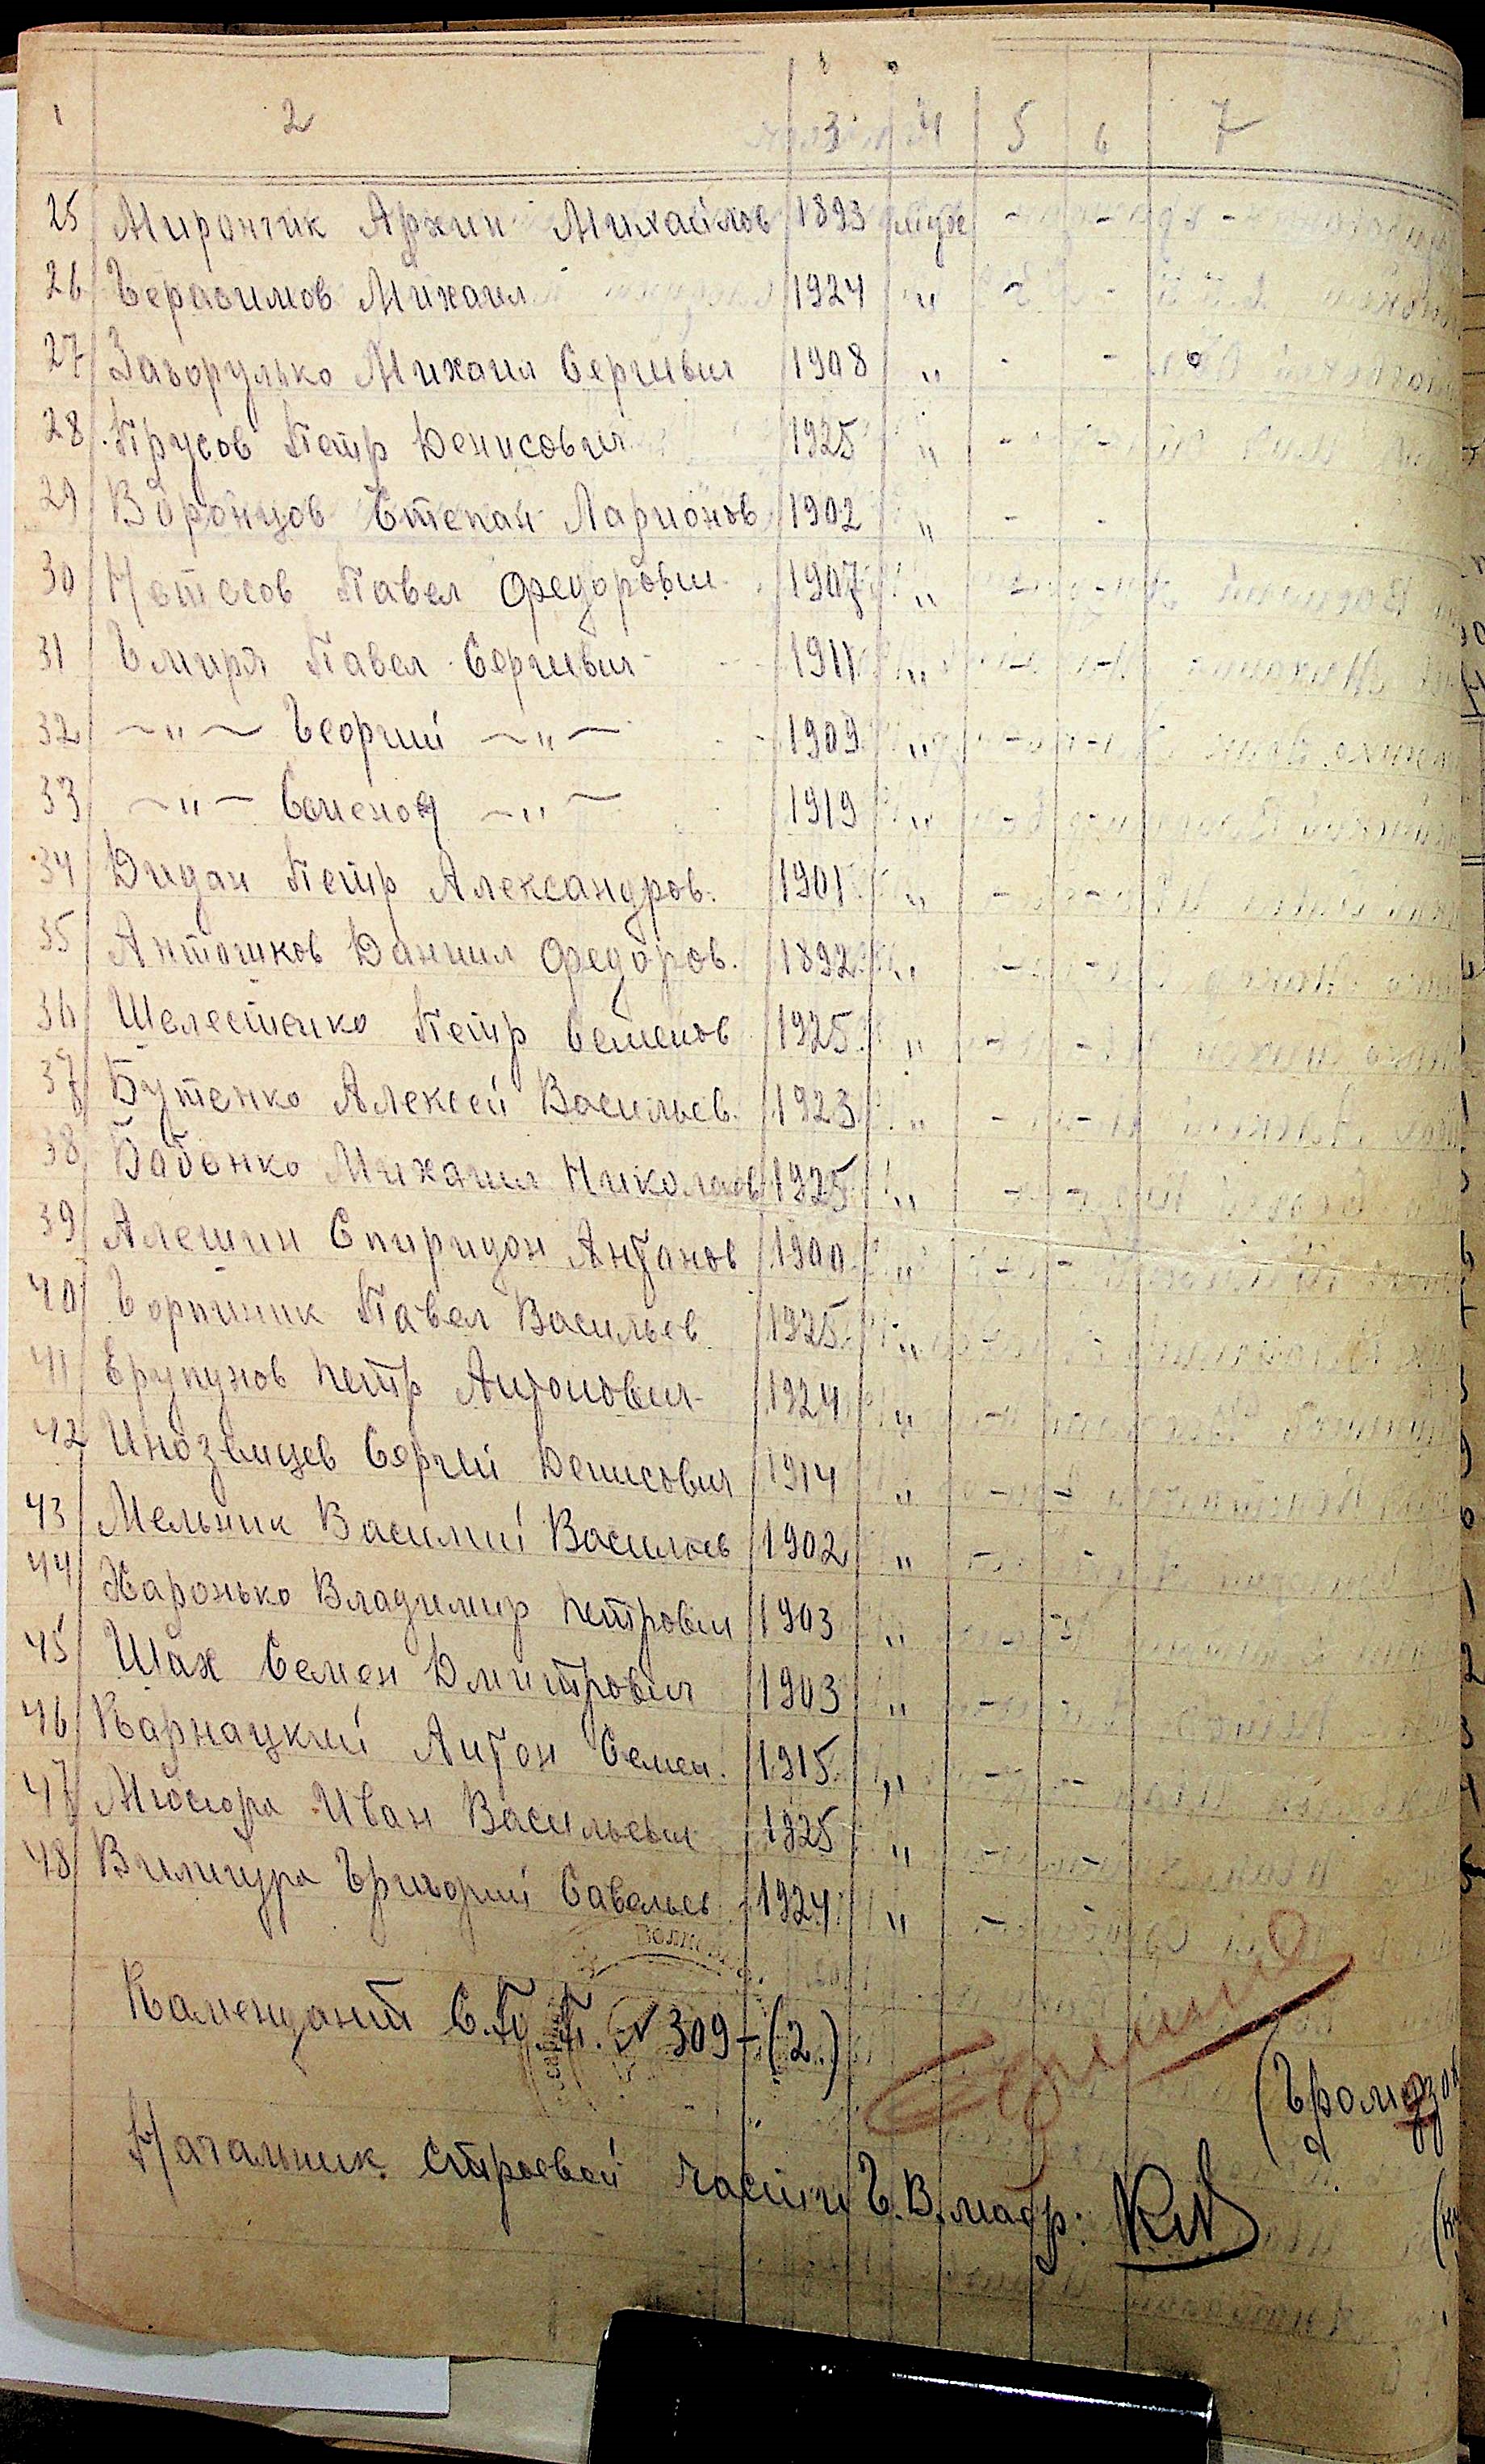 1 2 3 4 5 6 7
25 Мирончик Архип Михайлов 1893 муж - -
26 Герасимов Михаил 1924 " -
27 Загорулько Михаил Сергиевич 1908 " - -
28 Прусов Петр Денисович 1925 " - -
29 Воронцов Степан Ларионов 1902 " - -
30 Нетесов Павел Федорович 1907 " -
31 Гмиря Павел Сергиевич 1911 " -
32 ~"~ Георгий ~"~ 1909 " - -
33 ~"~ Семеной ~"~ 1919 " -
34 Дидан Петр Александров. 1901 " - -
35 Антошков Даниил Федоров. 1892 " -
36 Шелестенко Петр Семенов 1925 " - -
37 Бутенко Алексей Васильев. 1923 " - -
38 Бабенко Михаил Николаев 1925 " - -
39 Алешин Спиридон Антонов 1900 " - -
40 Горпиник Павел Васильев 1925 " -
41 Ерупунов Петр Антонович 1924 " -
42 Иноземцев Сергей Денисович 1914 " -
43 Мельник Василий Васильев 1902 " -
44 Харонько Владимир Петрович 1903 " -
45 Шах Семен Дмитрович 1903 " -
46 Карнацкий Антон Семен. 1915 " -
47 Мюсюра Иван Васильевич 1925 " -
48 Вилигура Григорий Савельев 1924 " -
Комендант С.П.П. № 309-(2)
Начальник строевой части Г.В. мафр.